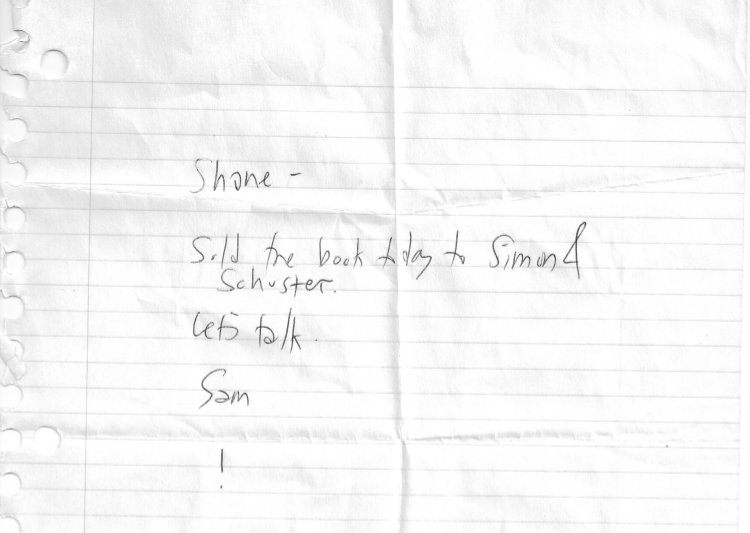 Shane -
Sold the book today to Simon &
Schuster.
Let's talk.
Sam
!